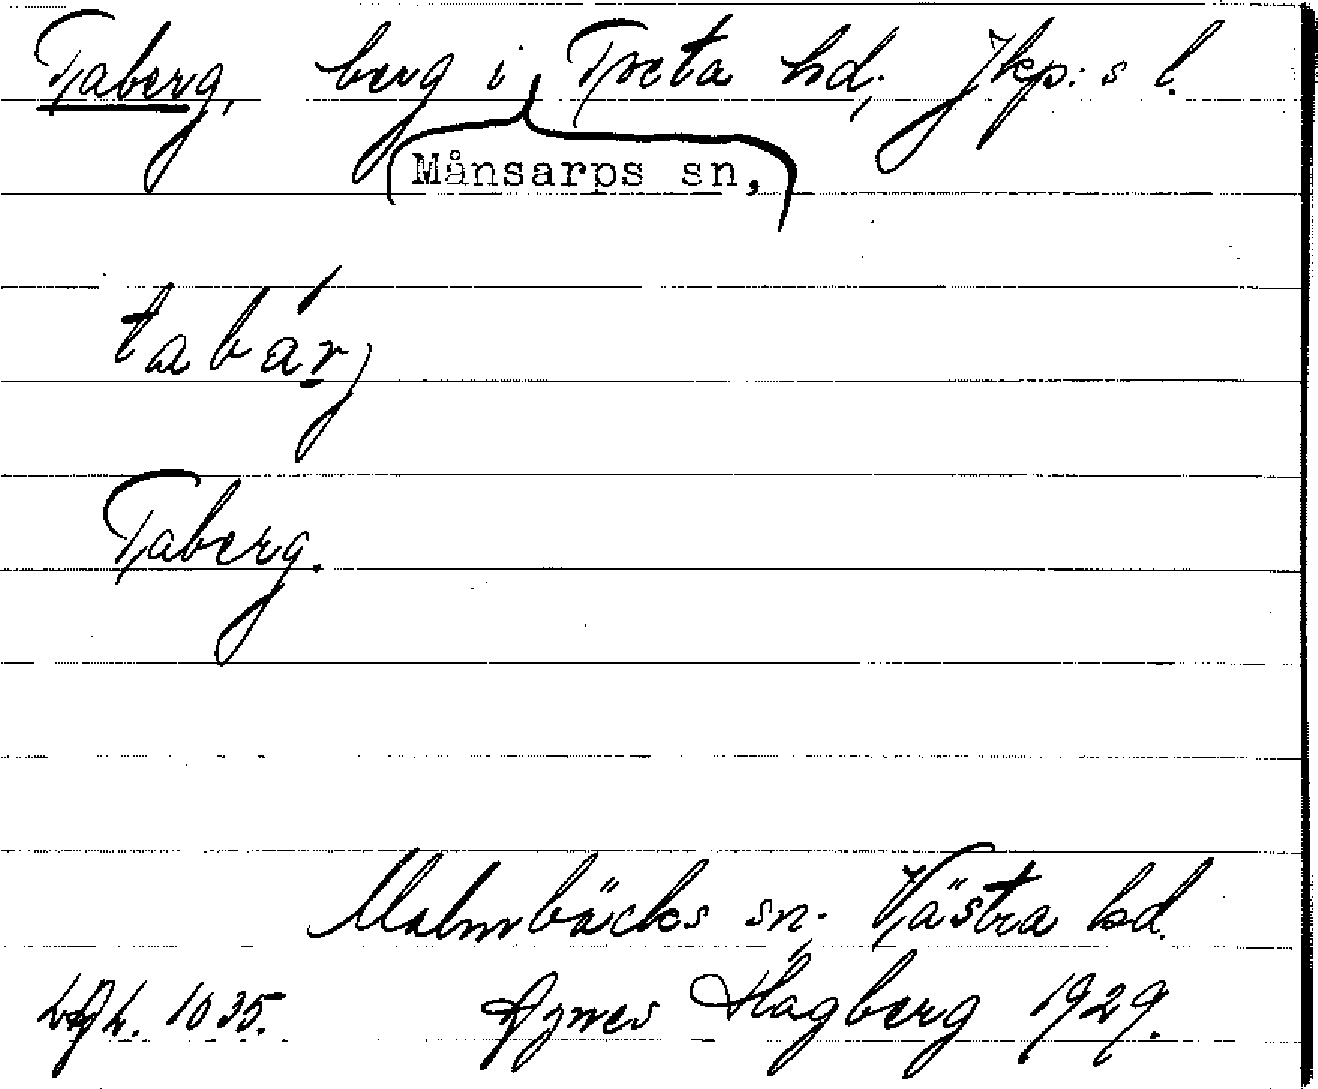 Taberg, berg i Tveta hd, Jkp:s l.
Månsarps sn,
tabárj
Taberg.
Malmbäcks sn. Västra hd.
1035. Agnes Hagberg 1929.